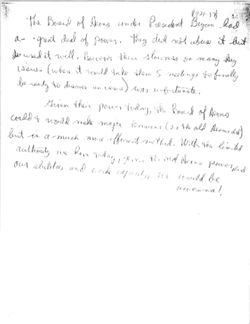 The Board of Deans under President Bryan had
a great deal of power. They did not abuse it but
used it well. However their slowness on many key
issues (when it would take them 5 meetings to finally
be ready to discuss an issue) was unfortunate.
Given their power today, the Board of Deans
could & would make major
but in a much more efficient method. With the limited
authority we have today, given the old Deans power and
our abilities and work capacity, we would be